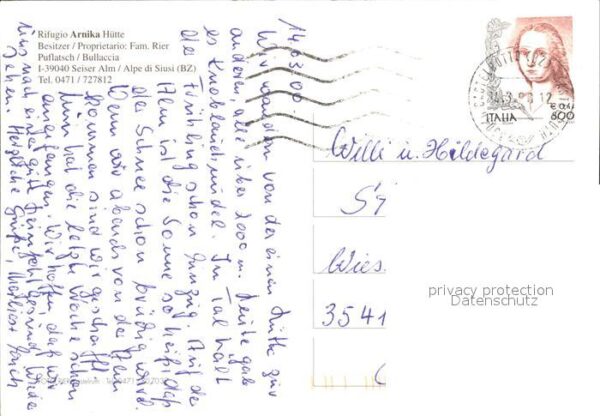 Rifugio Arnika Hütte
Besitzer / Proprietario: Fam. Rier
Puflatsch / Bullaccia
I-39040 Seiser Alm / Alpe di Siusi (BZ)
Tel. 0471 / 727812
14.03.00
Wir wandern von der einen Hütte zur
anderen, alle über 2000 m. Heute gab
es Knoblauchnudel. Im Tal hält
der Frühling schon Einzug. Auf der
Alm ist die Sonne so heiß daß
der Schnee schon brüchig wird.
Wenn wir abends von der Alm
kommen sind wir geschafft.
Nun hat die letzte Woche schon
angefangen. Wir hoffen, daß wir
uns nach einer guten Heimfahrt gesund wieder
sehen. Herzliche Grüße,
ITALIA
€ 0,41
600
Willi u. Hildegard
Wies
3541
privacy protection
Datenschutz